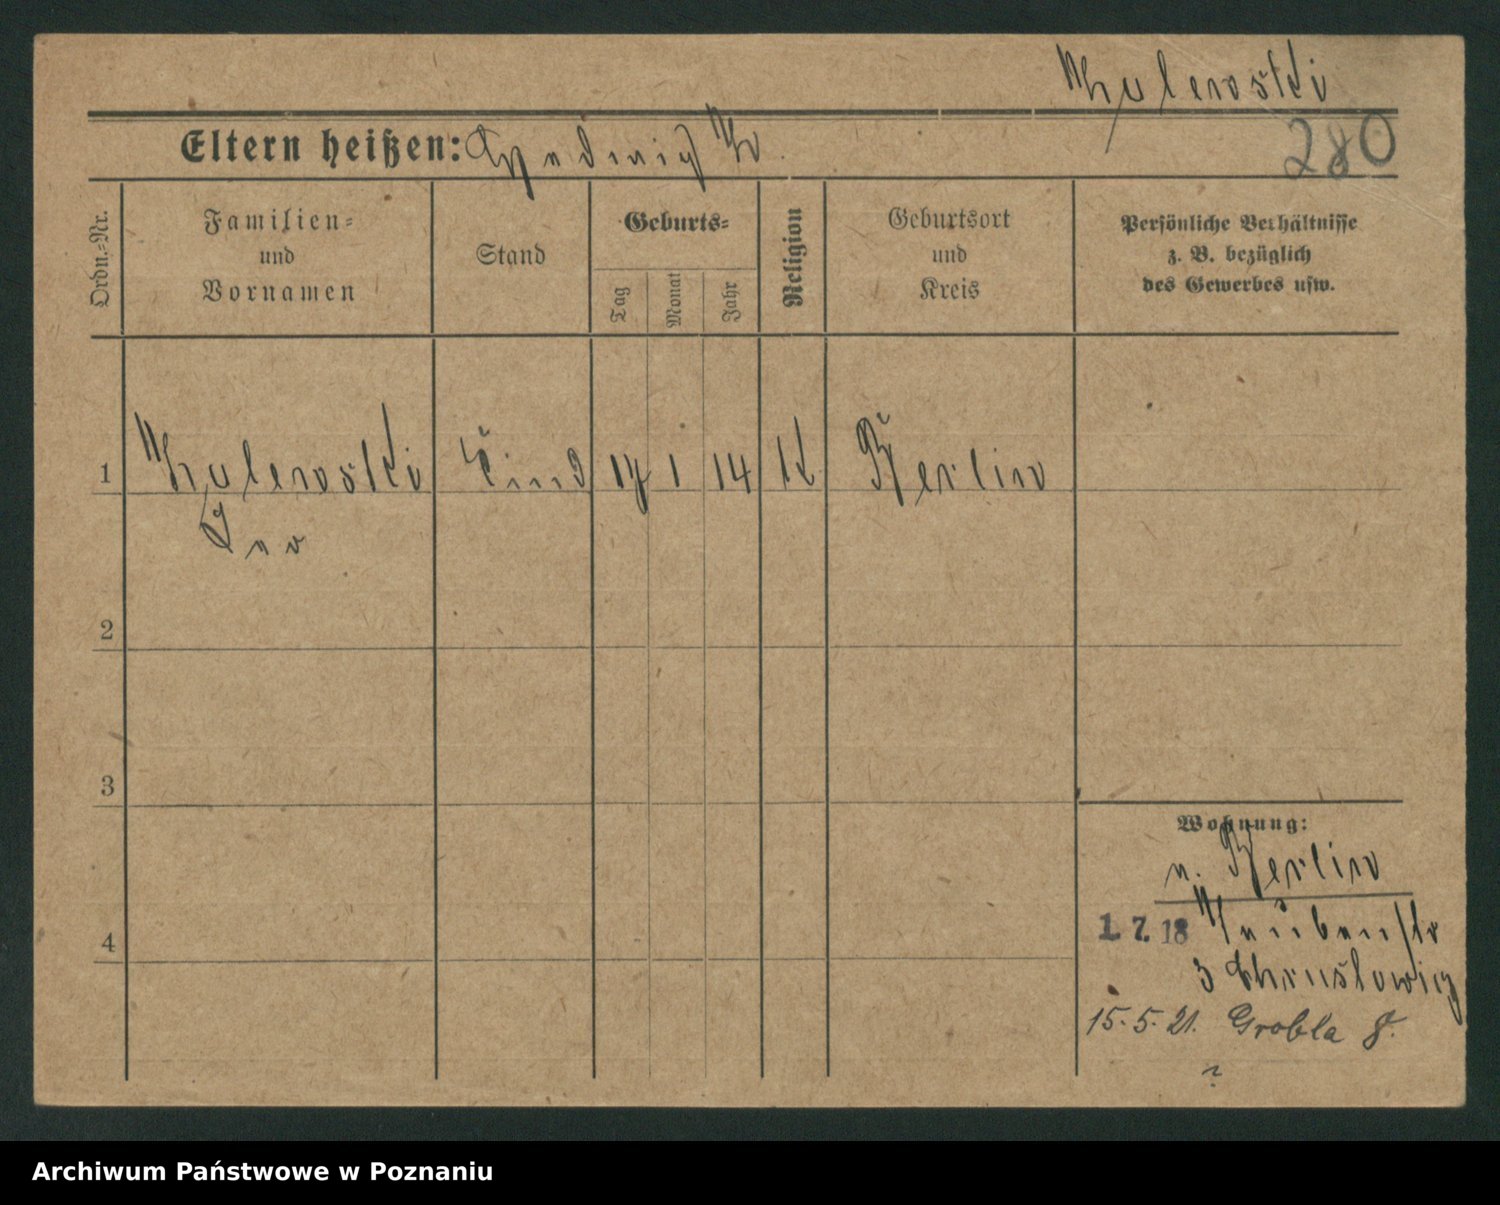 280
Eltern heißen: Hedwig
Ordn.=Nr.
Familien=
und
Vornamen
Stand
Geburts=
Tag
Monat
Jahr
Religion
Geburtsort
und
Kreis
Persönliche Verhältnisse
z. B. bezüglich
des Gewerbes usw.
1 Kind 17 1 14 K Berlin
2
3
4
Wohnung:
n. Berlin
1. 7. 18
3
15. 5. 21. Grobla 8.
?
Archiwum Państwowe w Poznaniu